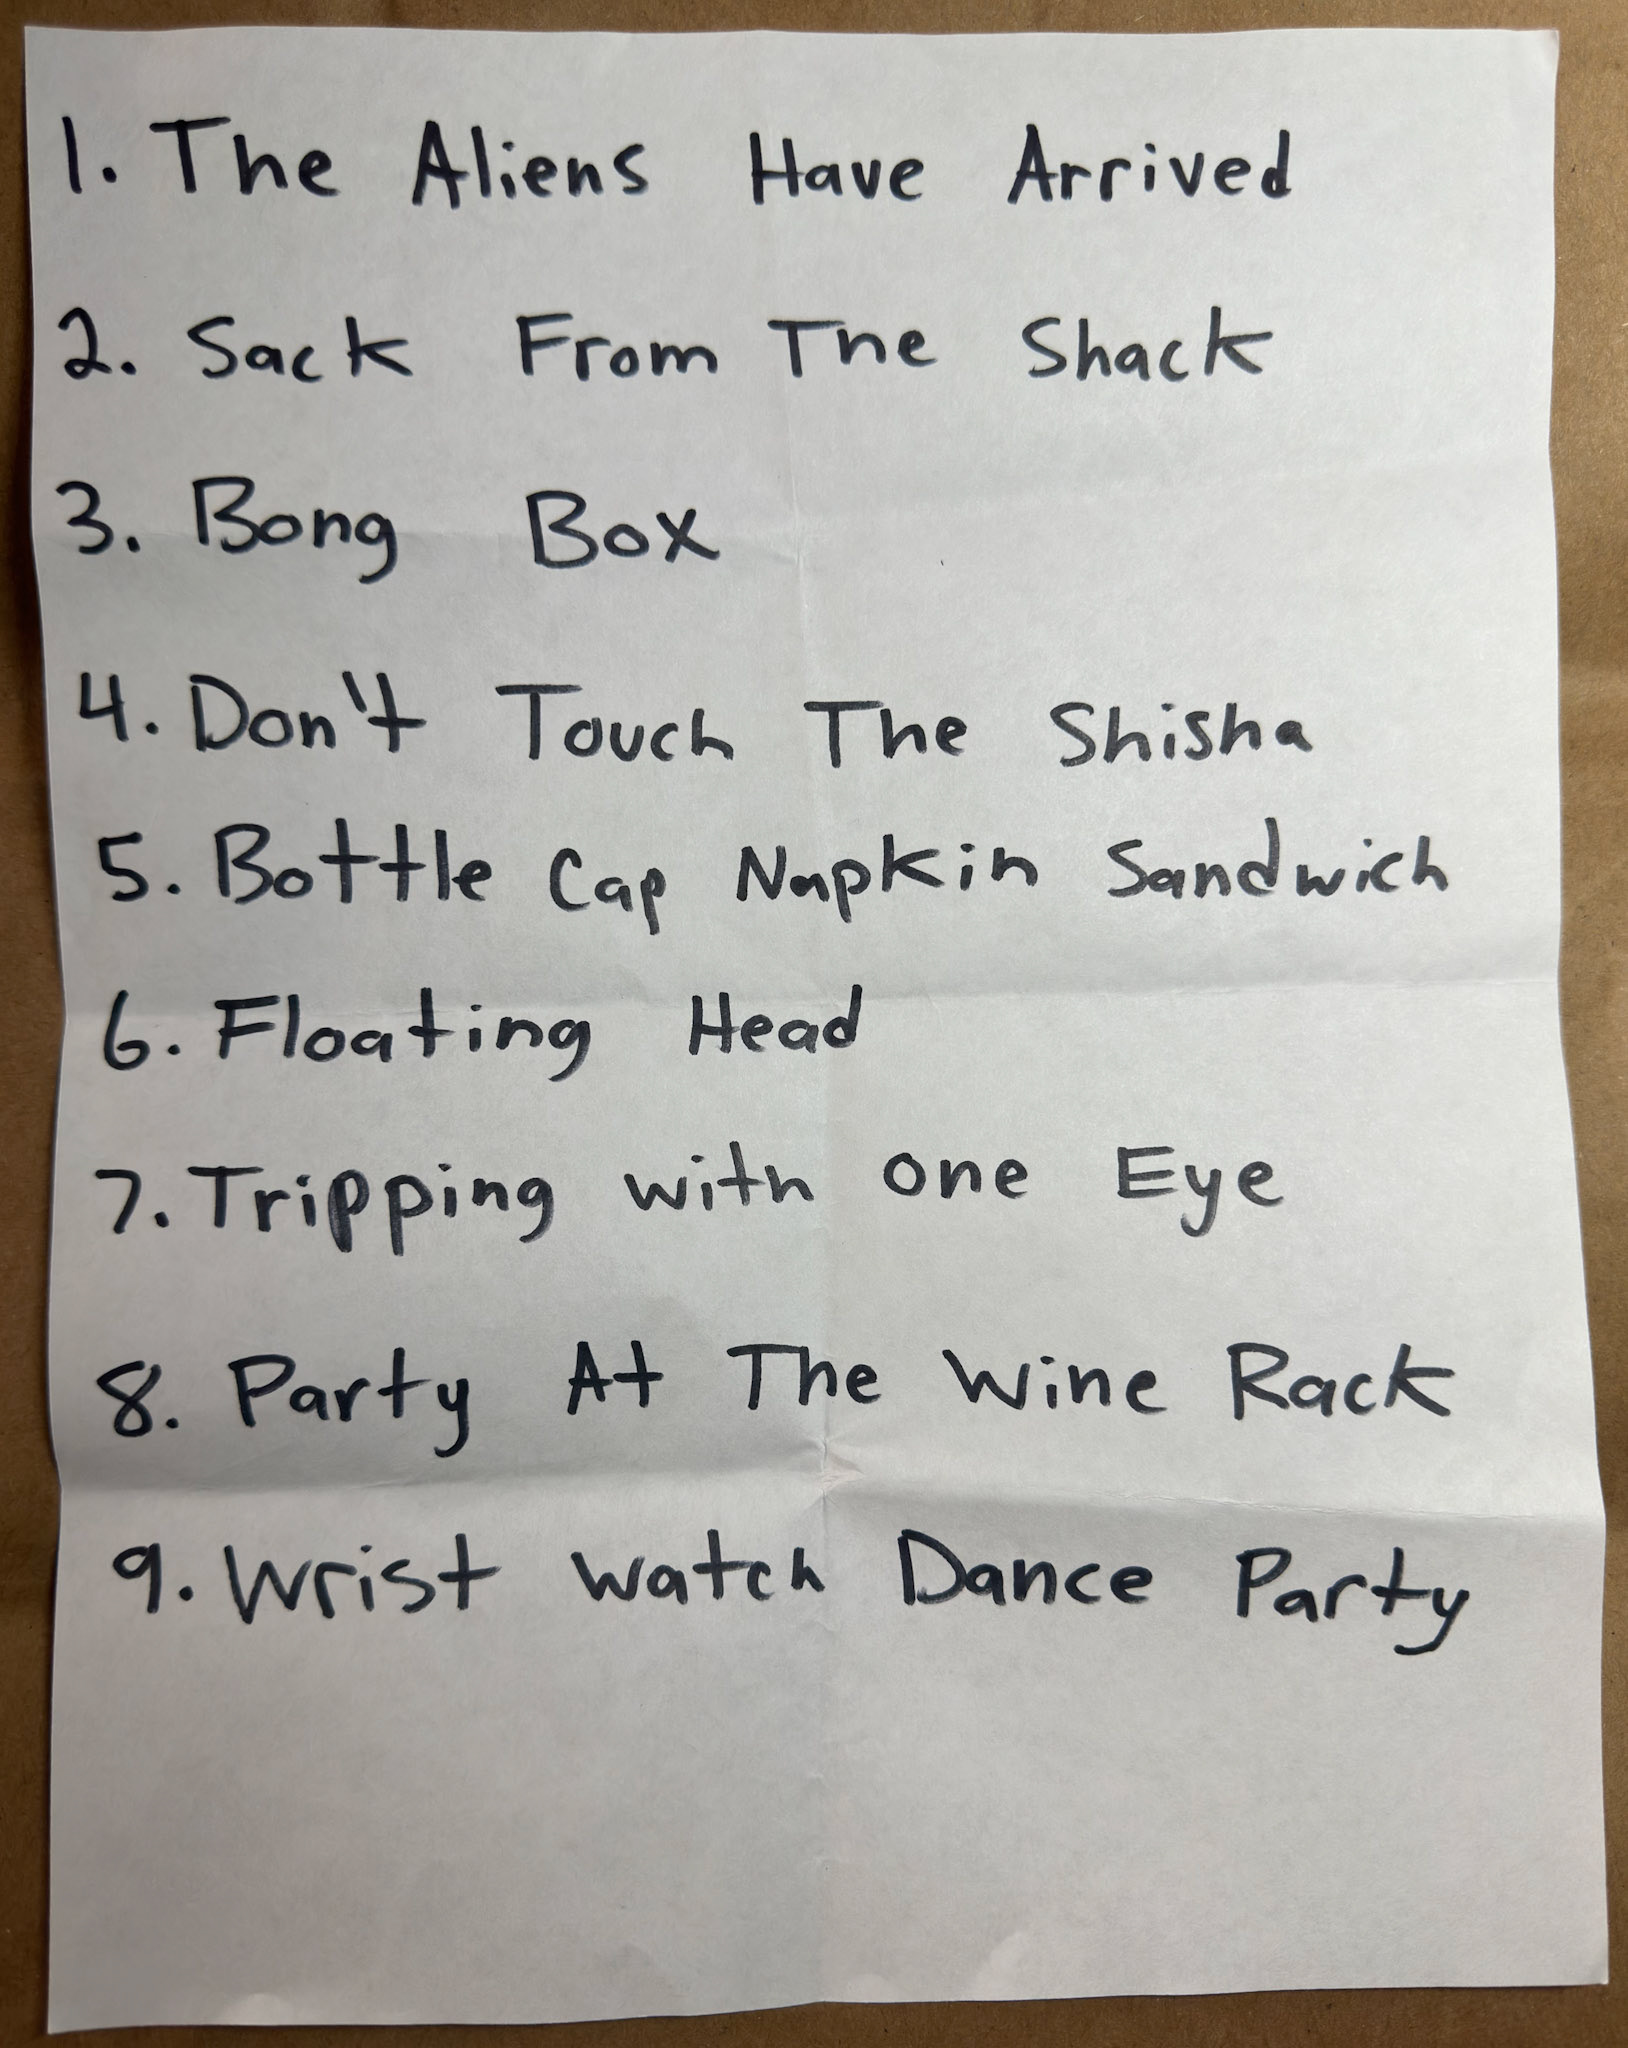 1. The Aliens Have Arrived
2. Sack From The Shack
3. Bong Box
4. Don't Touch The Shisha
5. Bottle Cap Napkin Sandwich
6. Floating Head
7. Tripping with one Eye
8. Party At The Wine Rack
9. Wrist watch Dance Party